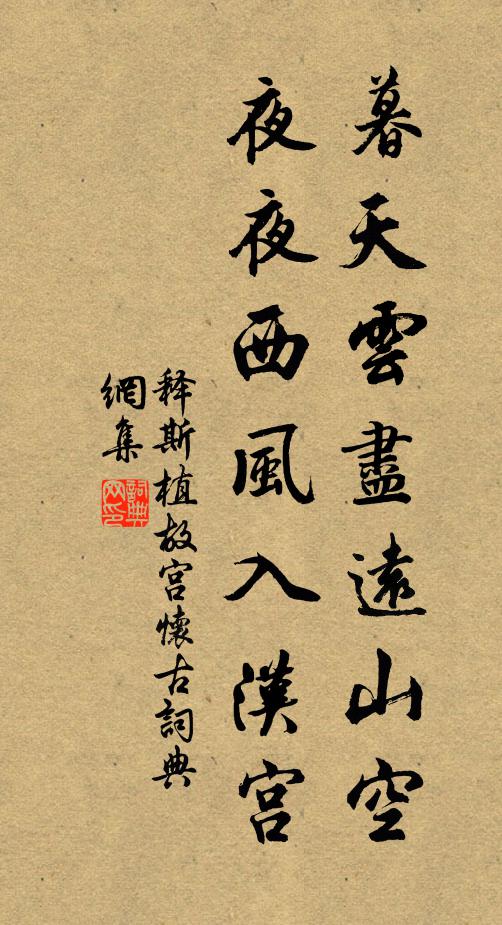 暮天雲盡遠山空
夜夜西風入漢宮
释斯植故宫懷古詞典
網集
詞典
网印